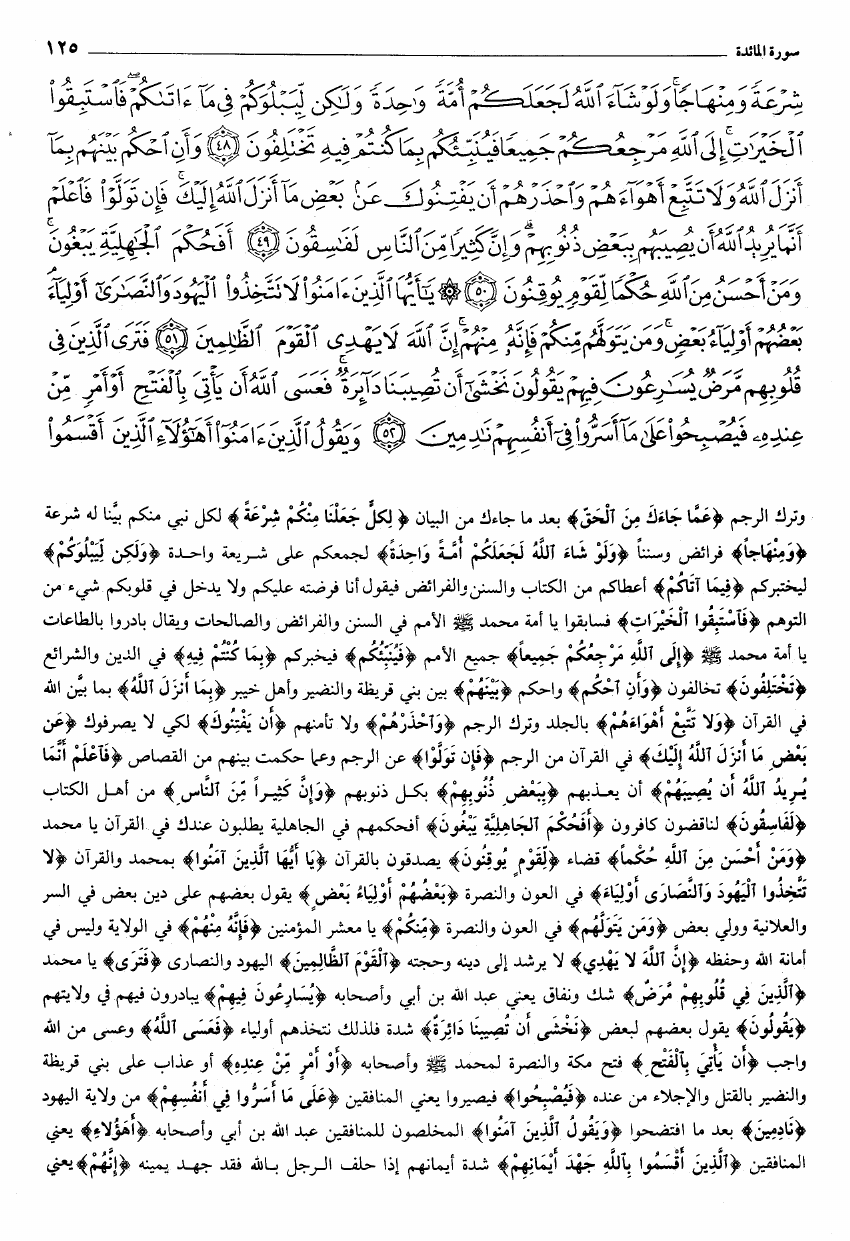 سورة المائدة ١٢٥
شِرْعَةً وَمِنْهَاجًا وَلَوْ شَاءَ ٱللَّهُ لَجَعَلَكُمْ أُمَّةً وَٰحِدَةً وَلَٰكِن لِّيَبْلُوَكُمْ فِى مَآ ءَاتَىٰكُمْ فَٱسْتَبِقُوا۟
ٱلْخَيْرَٰتِ إِلَى ٱللَّهِ مَرْجِعُكُمْ جَمِيعًا فَيُنَبِّئُكُم بِمَا كُنتُمْ فِيهِ تَخْتَلِفُونَ ﴿٤٨﴾ وَأَنِ ٱحْكُم بَيْنَهُم بِمَآ
أَنزَلَ ٱللَّهُ وَلَا تَتَّبِعْ أَهْوَآءَهُمْ وَٱحْذَرْهُمْ أَن يَفْتِنُوكَ عَنۢ بَعْضِ مَآ أَنزَلَ ٱللَّهُ إِلَيْكَ فَإِن تَوَلَّوْا۟ فَٱعْلَمْ
أَنَّمَا يُرِيدُ ٱللَّهُ أَن يُصِيبَهُم بِبَعْضِ ذُنُوبِهِمْ وَإِنَّ كَثِيرًا مِّنَ ٱلنَّاسِ لَفَٰسِقُونَ ﴿٤٩﴾ أَفَحُكْمَ ٱلْجَٰهِلِيَّةِ يَبْغُونَ
وَمَنْ أَحْسَنُ مِنَ ٱللَّهِ حُكْمًا لِّقَوْمٍ يُوقِنُونَ ﴿٥٠﴾ ۞ يَٰٓأَيُّهَا ٱلَّذِينَ ءَامَنُوا۟ لَا تَتَّخِذُوا۟ ٱلْيَهُودَ وَٱلنَّصَٰرَىٰٓ أَوْلِيَآءَ
بَعْضُهُمْ أَوْلِيَآءُ بَعْضٍ وَمَن يَتَوَلَّهُم مِّنكُمْ فَإِنَّهُۥ مِنْهُمْ إِنَّ ٱللَّهَ لَا يَهْدِى ٱلْقَوْمَ ٱلظَّٰلِمِينَ ﴿٥١﴾ فَتَرَى ٱلَّذِينَ فِى
قُلُوبِهِم مَّرَضٌ يُسَٰرِعُونَ فِيهِمْ يَقُولُونَ نَخْشَىٰٓ أَن تُصِيبَنَا دَآئِرَةٌ فَعَسَى ٱللَّهُ أَن يَأْتِىَ بِٱلْفَتْحِ أَوْ أَمْرٍ مِّنْ
عِندِهِۦ فَيُصْبِحُوا۟ عَلَىٰ مَآ أَسَرُّوا۟ فِىٓ أَنفُسِهِمْ نَٰدِمِينَ ﴿٥٢﴾ وَيَقُولُ ٱلَّذِينَ ءَامَنُوٓا۟ أَهَٰٓؤُلَآءِ ٱلَّذِينَ أَقْسَمُوا۟
وترك الرجم ﴿عَمَّا جَاءَكَ مِنَ ٱلْحَقِّ﴾ بعد ما جاءك من البيان ﴿لِكلٍّ جَعَلْنَا مِنْكُمْ شِرْعَةً﴾ لكل نبي منكم بيَّنا له شرعة
﴿وَمِنْهَاجاً﴾ فرائض وسنناً ﴿وَلَوْ شَاءَ ٱللَّهُ لَجَعَلَكُمْ أُمَّةً وَاحِدَةً﴾ لجمعكم على شريعة واحدة ﴿وَلَكِن لِيَبْلُوَكُمْ﴾
ليختبركم ﴿فِيمَا آتَاكُمْ﴾ أعطاكم من الكتاب والسنن والفرائض فيقول أنا فرضته عليكم ولا يدخل في قلوبكم شيء من
التوهم ﴿فَٱسْتَبِقُوا ٱلْخَيْرَاتِ﴾ فسابقوا يا أمة محمد ﷺ الأمم في السنن والفرائض والصالحات ويقال بادروا بالطاعات
يا أمة محمد ﷺ ﴿إِلَى ٱللَّهِ مَرْجِعُكُمْ جَمِيعاً﴾ جميع الأمم ﴿فَيُنَبِّئُكُم﴾ فيخبركم ﴿بِمَا كُنْتُمْ فِيهِ﴾ في الدين والشرائع
﴿تَخْتَلِفُونَ﴾ تخالفون ﴿وَأَنِ ٱحْكُم﴾ واحكم ﴿بَيْنَهُمْ﴾ بين بني قريظة والنضير وأهل خيبر ﴿بِمَا أَنزَلَ ٱللَّهُ﴾ بما بيَّن الله
في القرآن ﴿وَلَا تَتَّبِعْ أَهْوَاءَهُمْ﴾ بالجلد وترك الرجم ﴿وَٱحْذَرْهُمْ﴾ ولا تأمنهم ﴿أَن يَفْتِنُوكَ﴾ لكي لا يصرفوك ﴿عَن
بَعْضِ مَا أَنزَلَ ٱللَّهُ إِلَيْكَ﴾ في القرآن من الرجم ﴿فَإِن تَوَلَّوْا﴾ عن الرجم وعما حكمت بينهم من القصاص ﴿فَٱعْلَمْ أَنَّمَا
يُرِيدُ ٱللَّهُ أَن يُصِيبَهُمْ﴾ أن يعذبهم ﴿بِبَعْضِ ذُنُوبِهِمْ﴾ بكل ذنوبهم ﴿وَإِنَّ كَثِيراً مِّنَ ٱلنَّاسِ﴾ من أهل الكتاب
﴿لَفَاسِقُونَ﴾ لناقضون كافرون ﴿أَفَحُكْمَ ٱلجَاهِلِيَّةِ يَبْغُونَ﴾ أفحكمهم في الجاهلية يطلبون عندك في القرآن يا محمد
﴿وَمَنْ أَحْسَن مِنَ ٱللَّهِ حُكْماً﴾ قضاء ﴿لِقَوْمٍ يُوقِنُونَ﴾ يصدقون بالقرآن ﴿يَا أَيُّهَا ٱلَّذِينَ آمَنُوا﴾ بمحمد والقرآن ﴿لَا
تَتَّخِذُوا ٱلْيَهُودَ وَٱلنَّصَارَى أَوْلِيَاءَ﴾ في العون والنصرة ﴿بَعْضُهُمْ أَوْلِيَاءُ بَعْضٍ﴾ يقول بعضهم على دين بعض في السر
والعلانية وولي بعض ﴿وَمَن يَتَوَلَّهُم﴾ في العون والنصرة ﴿مِّنكُمْ﴾ يا معشر المؤمنين ﴿فَإِنَّهُ مِنْهُمْ﴾ في الولاية وليس في
أمانة الله وحفظه ﴿إِنَّ ٱللَّهَ لَا يَهْدِي﴾ لا يرشد إلى دينه وحجته ﴿ٱلْقَوْمَ ٱلظَّالِمِينَ﴾ اليهود والنصارى ﴿فَتَرَى﴾ يا محمد
﴿ٱلَّذِينَ فِي قُلُوبِهِمْ مَّرَضٌ﴾ شك ونفاق يعني عبد الله بن أبي وأصحابه ﴿يُسَارِعُونَ فِيهِمْ﴾ يبادرون فيهم في ولايتهم
﴿يَقُولُونَ﴾ يقول بعضهم لبعض ﴿نَخْشَى أَن تُصِيبَنَا دَائِرَةٌ﴾ شدة فلذلك نتخذهم أولياء ﴿فَعَسَى ٱللَّهُ﴾ وعسى من الله
واجب ﴿أَن يَأْتِيَ بِٱلْفَتْحِ﴾ فتح مكة والنصرة لمحمد ﷺ وأصحابه ﴿أَوْ أَمْرٍ مِّنْ عِندِهِ﴾ أو عذاب على بني قريظة
والنضير بالقتل والإجلاء من عنده ﴿فَيُصْبِحُوا﴾ فيصيروا يعني المنافقين ﴿عَلَى مَا أَسَرُّوا فِي أَنفُسِهِمْ﴾ من ولاية اليهود
﴿نَادِمِينَ﴾ بعد ما افتضحوا ﴿وَيَقُولُ ٱلَّذِينَ آمَنُوا﴾ المخلصون للمنافقين عبد الله بن أبي وأصحابه ﴿أَهَؤُلَاءِ﴾ يعني
المنافقين ﴿ٱلَّذِينَ أَقْسَمُوا بِٱللَّهِ جَهْدَ أَيْمَانِهِمْ﴾ شدة أيمانهم إذا حلف الرجل بالله فقد جهد يمينه ﴿إِنَّهُمْ﴾ يعني